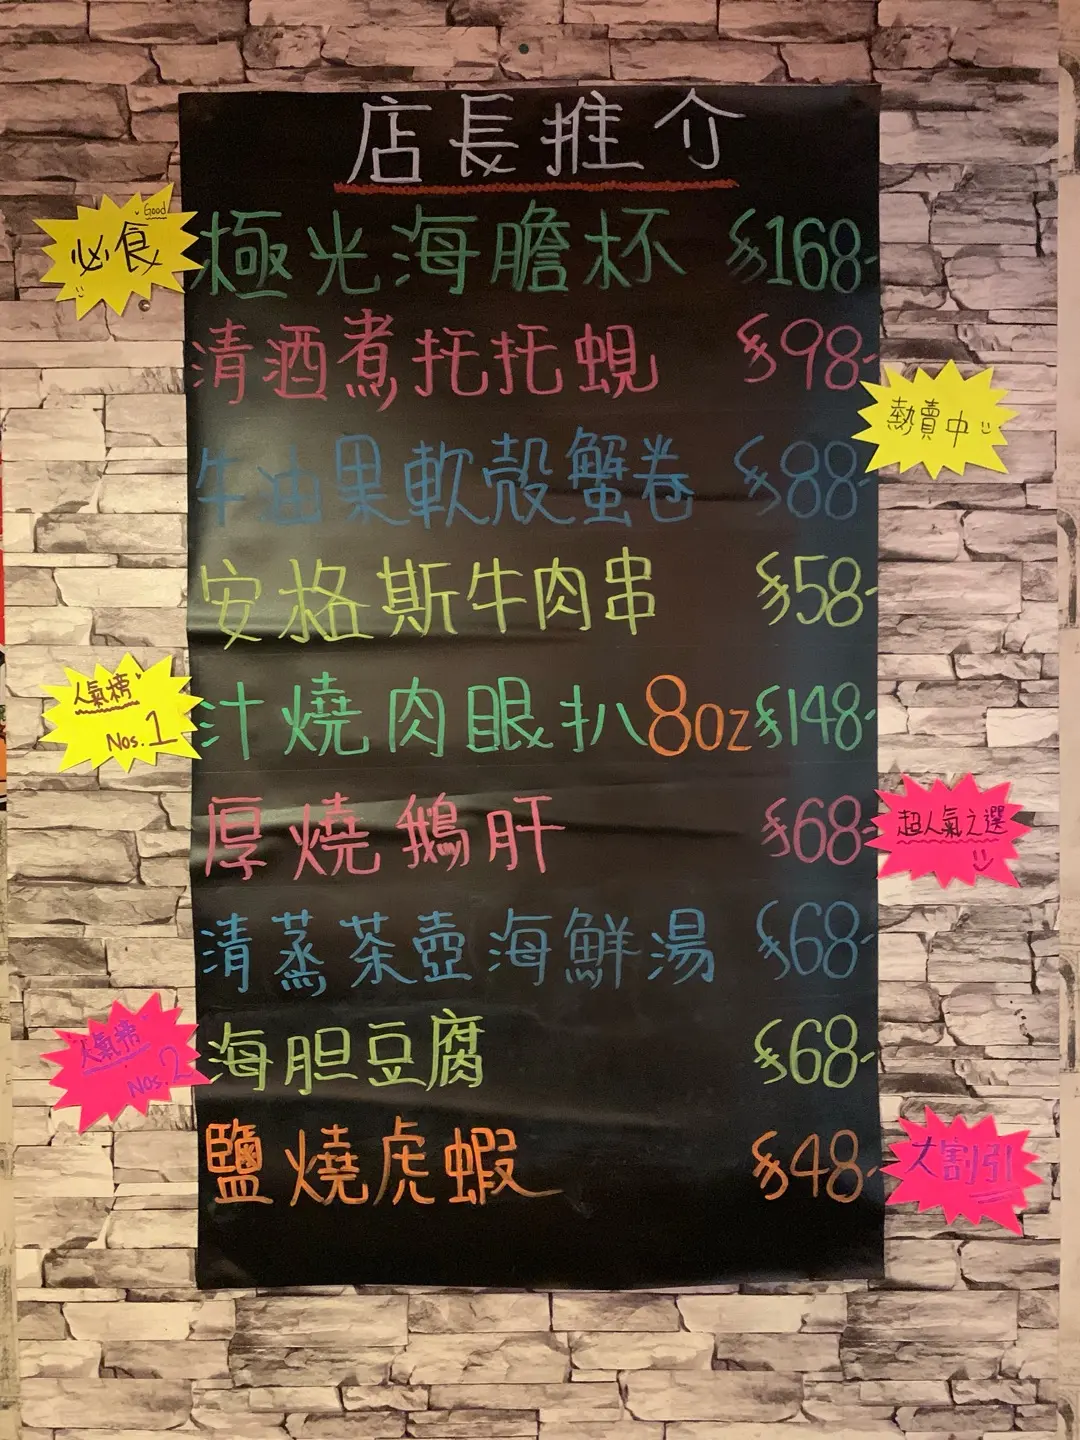 店長推介
Good
必食
極光海膽杯 $168-
清酒煮扥扥蜆 $98-
熱賣中
牛油果軟殼蟹卷 $88-
安格斯牛肉串 $58-
人氣榜
Nos.1
汁燒肉眼扒8oz $148-
厚燒鵝肝 $68-
超人氣之選
清蒸茶壺海鮮湯 $68-
人氣榜
Nos.2
海胆豆腐 $68-
鹽燒虎蝦 $48-
大割引